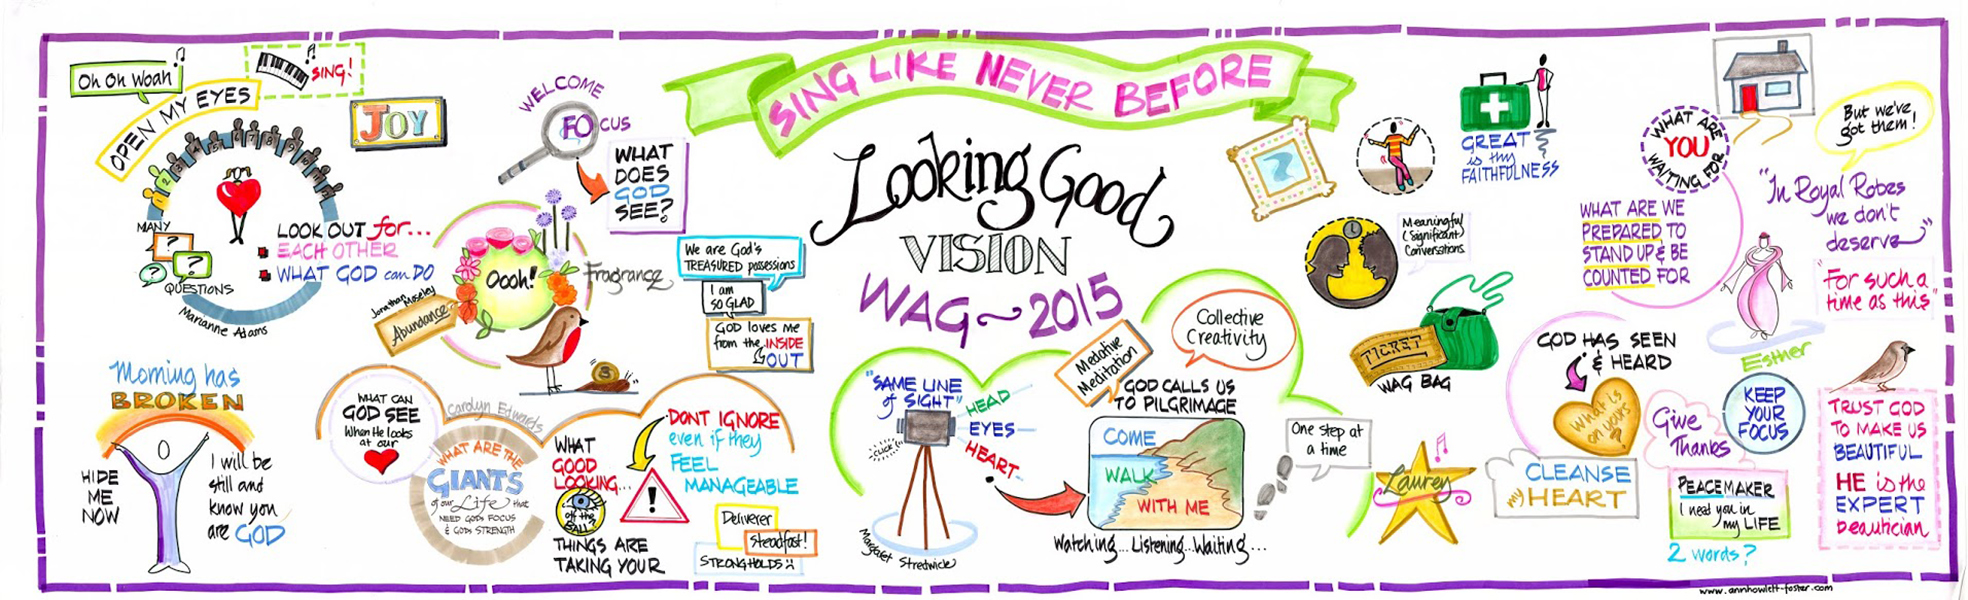 SING LIKE NEVER BEFORE
Looking Good
VISION
WAG~2015
Oh Oh Woah
SING!
OPEN MY EYES
JOY
MANY
?
?
?
QUESTIONS
LOOK OUT for...
EACH OTHER
WHAT GOD can DO
Marianne Adams
WELCOME
FOCUS
WHAT
DOES
GOD
SEE?
Oooh!
Fragrance
Jonathan Moseley
Abundance
We are God's
TREASURED possessions
I am
SO GLAD
GOD loves me
from the INSIDE
OUT
Morning has
BROKEN
HIDE
ME
NOW
I will be
still and
know you
are GOD
WHAT CAN
GOD SEE
When He looks
at our
Carolyn Edwards
WHAT ARE THE
GIANTS
of our Life that
NEED GODS FOCUS
& GODS STRENGTH
WHAT
GOOD
LOOKING...
THINGS ARE
TAKING YOUR
off the
BALL?
DONT IGNORE
even if they
FEEL
MANAGEABLE
!
Deliverer
Steadfast!
STRONGHOLDS
"SAME LINE
of SIGHT"
HEAD
EYES
HEART
click
Margaret Stredwick
Mediative
Meditation
Collective
Creativity
GOD CALLS US
TO PILGRIMAGE
COME
WALK
WITH ME
Watching...Listening...Waiting...
One step at
a time
GREAT
is thy
FAITHFULNESS
Meaningful
(significant)
Conversations
TICKET
WAG BAG
Laurey
WHAT ARE
YOU
WAITING FOR
WHAT ARE WE
PREPARED TO
STAND UP & BE
COUNTED FOR
But we've
got them!
"In Royal Robes
we don't
deserve"
"For such a
time as this"
Esther
GOD HAS SEEN
& HEARD
What is
on yours
?
CLEANSE
my HEART
Give
Thanks
KEEP
YOUR
FOCUS
PEACEMAKER
I need you in
my LIFE
2 words?
TRUST GOD
TO MAKE US
BEAUTIFUL
HE is the
EXPERT
beautician
www.annhowlett-foster.com